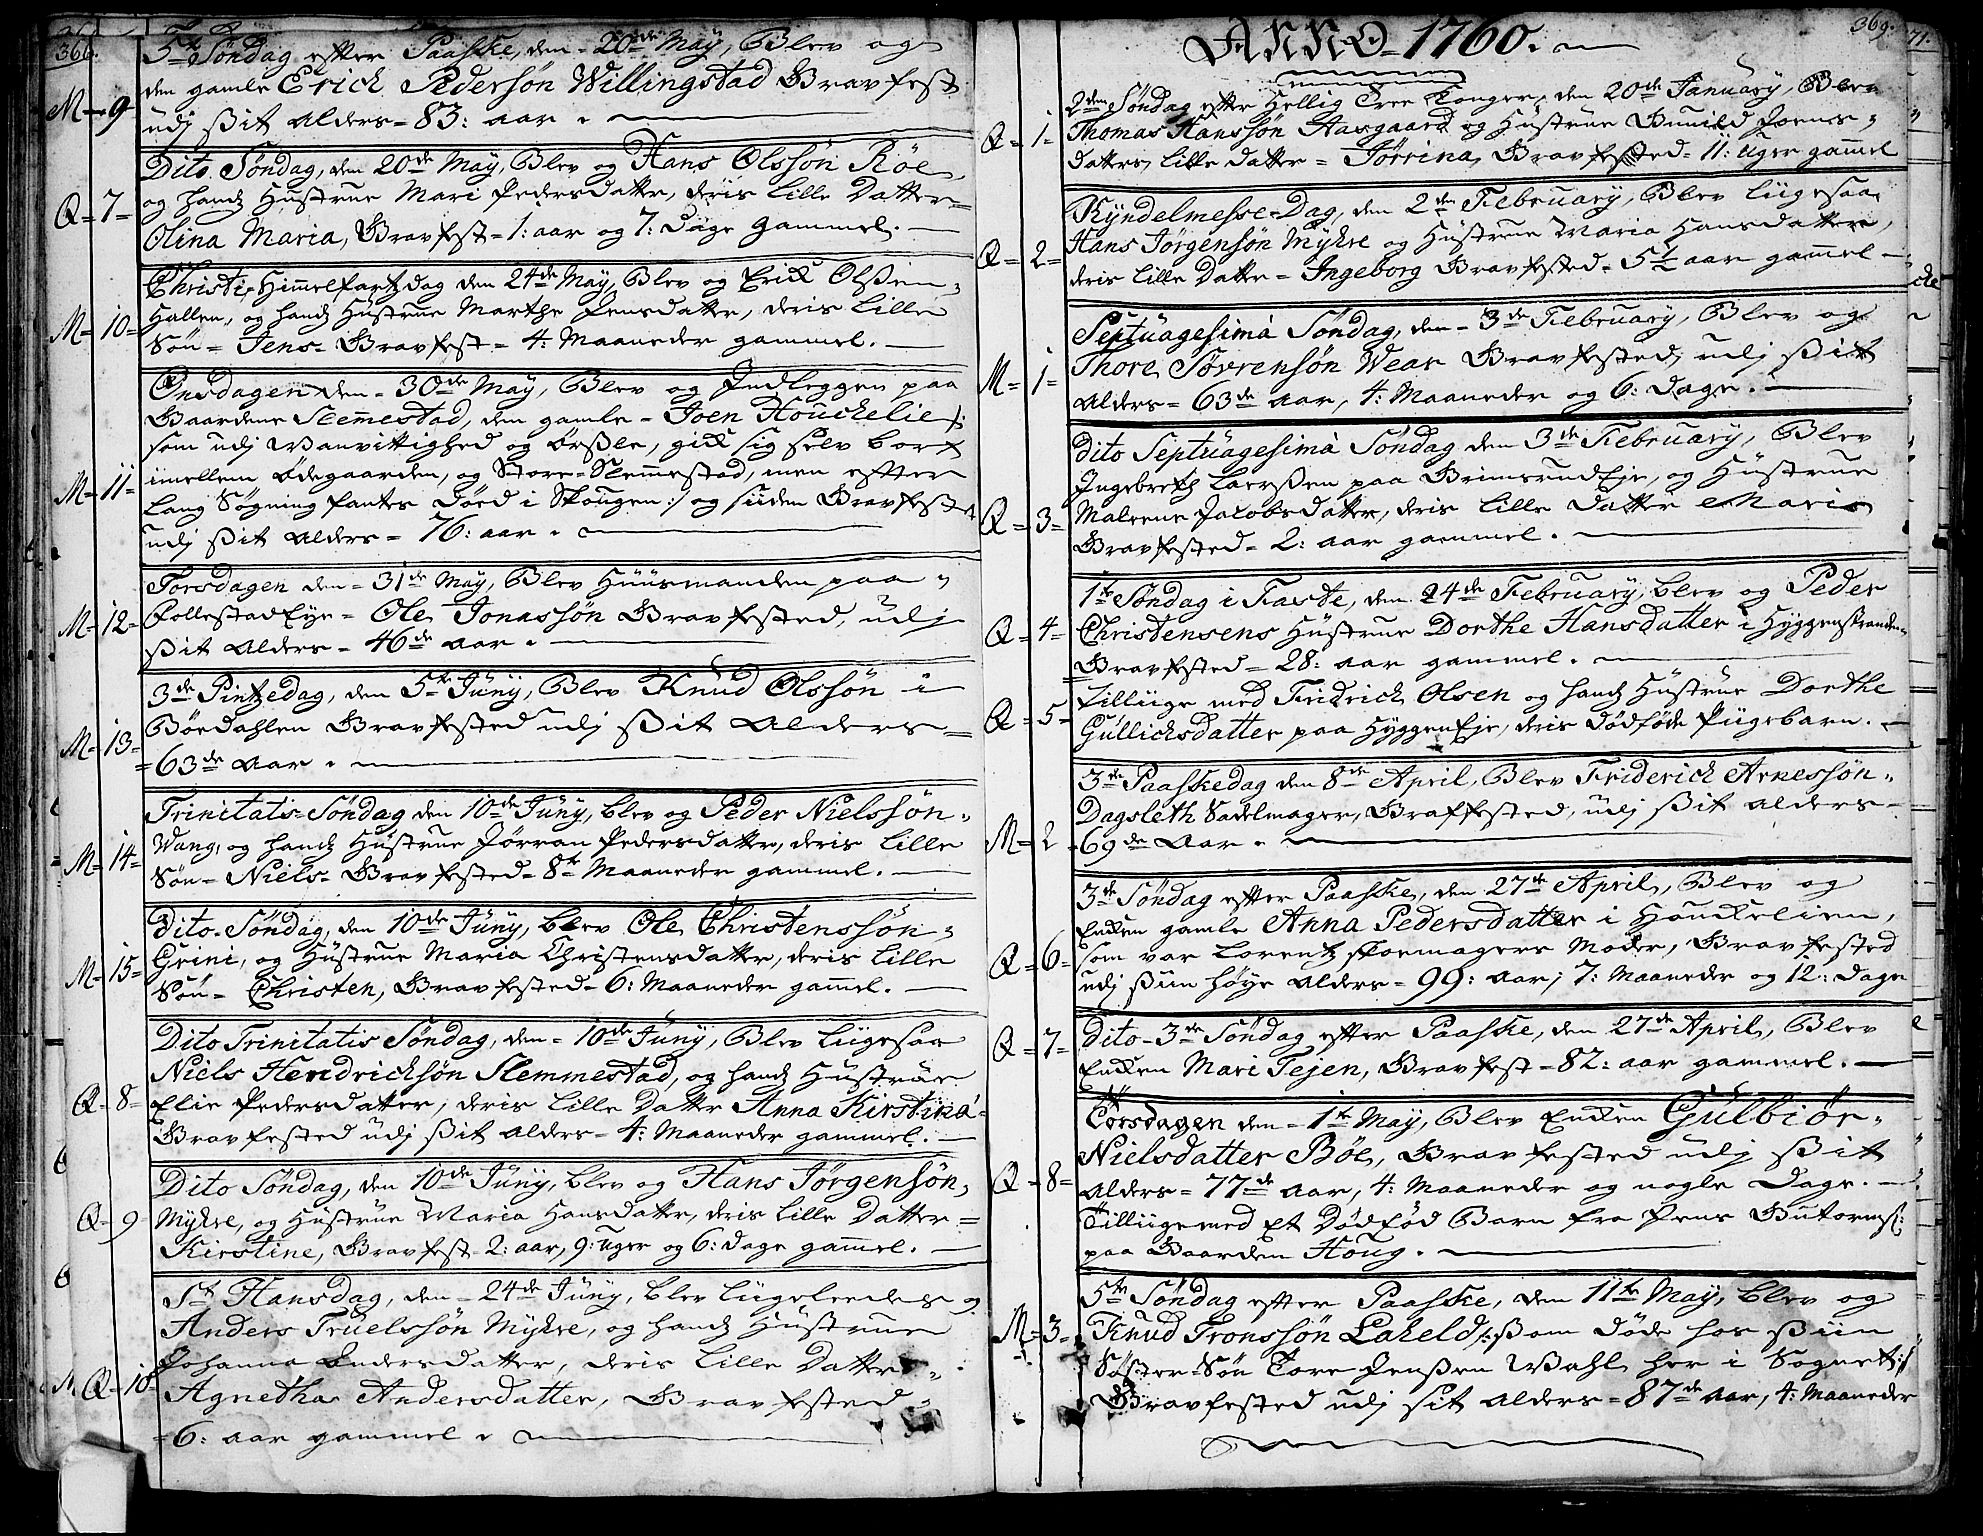 366.
5te Søndag efter Paaske, den 20de May, Blev og
den gamle Erick Pedersøn Willingstad Gravfest
M 9 udj sit Alders 83: aar.
Dito Søndag, den 20de May, Blev og Hans Olssøn Røe
Q 7 og hands Hustrue Mari Pedersdatter, deris Lille Datter
Olina Maria, Gravfest 1: aar og 7: Dage gammel.
Christi Himmelfartz dag den 24de May, Blev og Erick Olsen
M 10 Hallen, og hands Hustrue Marthe Jensdatter, deris Lille
Søn Jens Gravfest 4: Maaneder gammel.
Onsdagen den 30de May, Blev og Indleggen paa
Gaardene Slemmestad, den gamle Joen Houckelie /:
som udj Vanvittighed og Ørsle, gick sig selv bort
M 11 imellem Ødegaarden, og Store Slemmestad, men efter
Lang Søgning fantes Død i Skougen :/ og siiden Gravfest
udj sit Alders 76: aar.
Torsdagen den 31de May, Blev Huusmanden paa
M 12 FollestadEye Ole Jonassøn Gravfested, udj
sit Alders 46de aar.
3de Pintzedag, den 5te Juny, Blev Knud Olssøn i
M 13 Bøedahlen Gravfested udj sit Alders
63de aar.
Trinitatis Søndag den 10de Juny, blev og Peder Nielssøn
M 14 Wang, og hands Hustrue Jørran Pedersdatter, deris Lille
Søn Niels Gravfested 8te Maaneder gammel.
Dito Søndag, den 10de Juny, blev Ole Christenssøn
M 15 Grini, og Hustrue Maria Christensdatter, deris Lille
Søn Christen, Gravfested 6: Maaneder gammel.
Dito Trinitatis Søndag, den 10de Juny, Blev Liigesaa
Niels Hendricksøn Slemmestad, og hands Hustrue
Q 8 Elie Pedersdatter, deris Lille Datter Anna Kirstina
Gravfested udj sit Alders 4: Maaneder gammel.
Dito Søndag, den 10de Juny, blev og Hans Jørgensøn
Q 9 Myhre, og Hustrue Maria Hansdatter, deris Lille Datter
Kirstine, Gravfest 2: aar, 9: Uger og 6: dage gammel.
St Hansdag, den 24de Juny, blev Liigeleedes
Anders Truelssøn Myhre, og hands Hustrue
Johanna Andersdatter, deris Lille Datter
Q 10 Agnetha Andersdatter, Gravfested
6: aar gammel.
369.
ANNO 1760.
2den Søndag efter Hellig Tree Konger, den 20de January, Blev
Q 1 Thomas Hanssøn Aasgaard og Hustrue Gunild Joens
datters Lille Datter Jørrina, Gravfested 11: Uger gammel
Kyndelmesse Dag, den 2den February, Blev Liigesaa
Q 2 Hans Jørgensøn Myhre og Hustrue Maria Hansdatter,
deris Lille Datter Ingeborg Gravfested 5½ aar gammel
Septuagesima Søndag, den 3de February, Blev og
M 1 Thore Sørrensøn Wear Gravfested, udj sit
Alders 63de aar, 4: Maaneder og 6: Dage.
Dito Septuagesima Søndag den 3de February, Blev
Ingebreth Larssen paa BrimsrudEje, og Hustrue
Q 3 Maleene Jacobsdatter, deris Lille Datter Maria
Gravfested 2: aar gammel.
1te Søndag i Faste, den 24de February, blev og Peder
Q 4 Christensens Hustrue Dorthe Hansdatter i Hyggenstranden
Gravfested 28: aar gammel.
Tilliige med Fridrich Olsen og hands Hustrue Dorthe
Q 5 Gullichsdatter paa HyggenEje, deris Dødføde Pigebarn.
3de Paaskedag den 8de April, Blev Friderich Arnessøn
Dagsleth Sadelmager, Graffested, udj sit Alders
M 2 69de Aar.
3de Søndag efter Paaske, den 27de April, Blev og
Enken gamle Anna Pedersdatter i Houckelien,
Q 6 som var Lorentz Skomagers Moder, Gravfested
udj siin høye Alders 99: aar, 7: Maaneder og 12: Dage
Q 7 Dito 3de Søndag efter Paaske, den 27de April, Blev
Enken Mari Tejen, Gravfest 82: aar gammel.
Torsdagen den 1te May, Blev Enken Gulbiør
Nielsdatter Bøe, Gravfested udj sit
Q 8 Alders 77de aar, 4: Maaneder og nogle Dage.
Tilliigemed Et Dødfød Barn fra Jens Gutorms:
paa Gaarden Houg.
5te Søndag efter Paaske, den 11te May, blev og
M 3 Knud Tronssøn Lakeld /: som døde hos siin
Søster Søn Tore Jenssen Wahl her i Sognet :/
Gravfested udj sit Alders 87de aar, 4: Maaneder